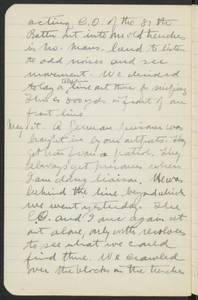 acting C.O. of the 87 the
Battn out into our old trenches
in No. Mans. Land to listen
to odd noises and see
movement. We decided
to lay a telephone line out there for sniping
It is 200 yds in front of our
front line.
May 1st. A German prisoner was
brought in by our outposts. They
got him from a patrol. They
always get prisoners when
I am doing liaison. He was
behind the line beyond which
we went yesterday. The
C.O. and I once again set
out alone, only with revolvers
to see what we could
find there. We crawled
over the blocks in the trenches